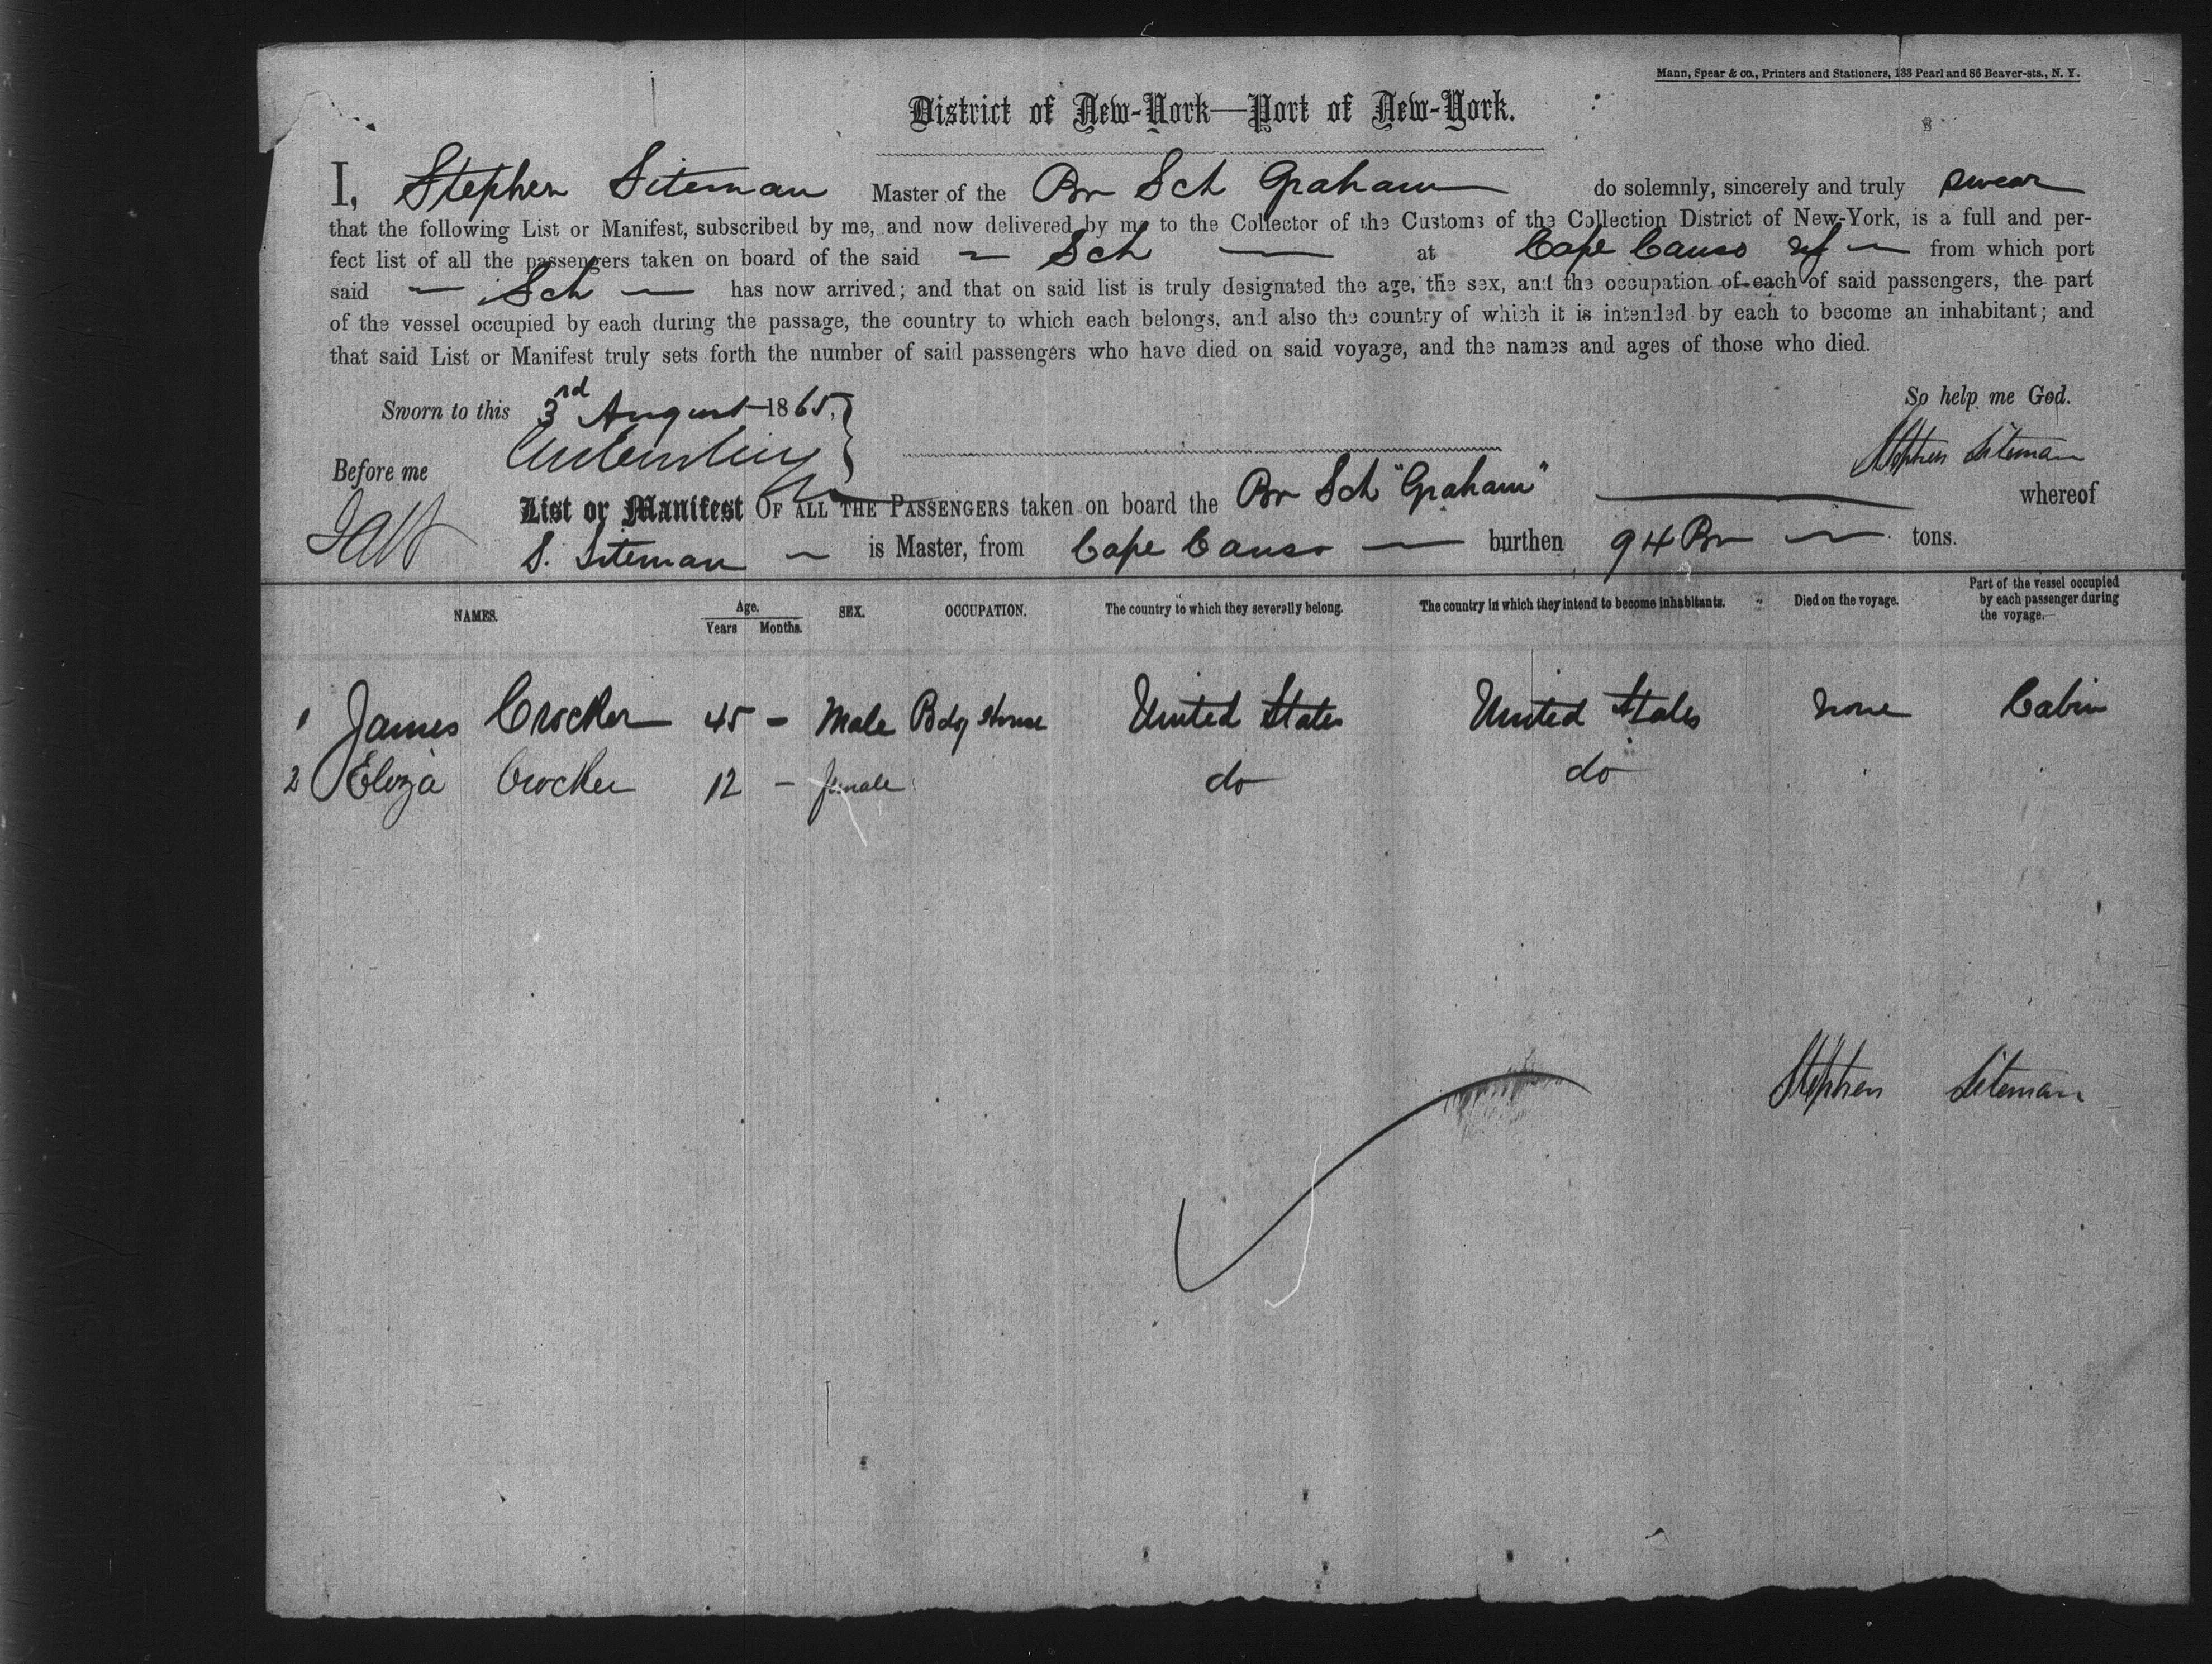 Mann, Spear & co., Printers and Stationers, 133 Pearl and 86 Beaver-sts., N. Y.
District of New-York—Port of New-York.
I, Stephen Siteman Master of the Br Sch Graham do solemnly, sincerely and truly swear
that the following List or Manifest, subscribed by me, and now delivered by me to the Collector of the Customs of the Collection District of New-York, is a full and per-
fect list of all the passengers taken on board of the said Sch at Cape Canso from which port
said Sch has now arrived; and that on said list is truly designated the age, the sex, and the occupation of each of said passengers, the part
of the vessel occupied by each during the passage, the country to which each belongs, and also the country of which it is intended by each to become an inhabitant; and
that said List or Manifest truly sets forth the number of said passengers who have died on said voyage, and the names and ages of those who died.
Sworn to this 3rd August 1865. So help me God.
Before me Stephen Siteman
List or Manifest OF ALL THE PASSENGERS taken on board the Br Sch "Graham" whereof
S. Siteman is Master, from Cape Canso burthen 94 Br tons.
NAMES. Age. Years Months. SEX. OCCUPATION. The country to which they severally belong. The country in which they intend to become inhabitants. Died on the voyage. Part of the vessel occupied by each passenger during the voyage.
1 James Crocker 45 - Male Bdg House United States United States none Cabin
2 Eliza Crocker 12 - female do do
Stephen Siteman